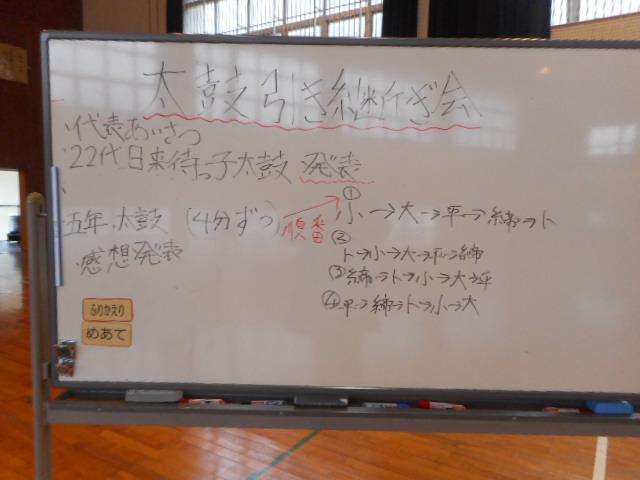 太鼓引き継ぎ会
・代表あいさつ
・22代目来待っ子太鼓 発表
・五年 太鼓 (4分ずつ) 順番
① 小→大→平→締→ト
② ト→小→大→平→締
③ 締→ト→小→大→平
④ 平→締→ト→小→大
・感想発表
ふりかえり
めあて